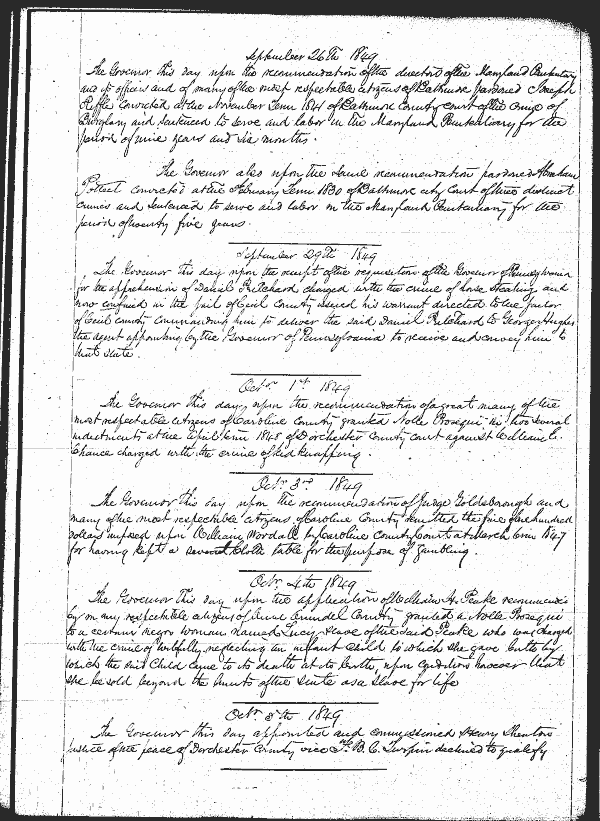 September 26th 1849
The Governor this day upon the recommendation of the directors of the Maryland Penitentiary
and its officers and of many of the most respectable citizens of Baltimore pardoned Joseph
convicted at the November Term 1841 of Baltimore County Court of the crime of
Burglary and sentenced to serve and labor in the Maryland Penitentiary for the
period of nine years and six months.
The Governor also upon the same recommendation pardoned Abraham
Potteet convicted at the February Term 1830 of Baltimore city Court of three distinct
crimes and sentenced to serve and labor in the Maryland Penitentiary for the
period of twenty five years.
September 29th 1849
The Governor this day upon the receipt of the requisition of the Governor of Pennsylvania
for the apprehension of Daniel Pritchard charged with the crime of horse stealing and
now confined in the jail of Cecil County issued his warrant directed to the Jailor
of Cecil county commanding him to deliver the said Daniel Pritchard to George Hughes
the agent appointed by the Governor of Pennsylvania to receive and convey him to
that state.
Octr 1st 1849
The Governor this day upon the recommendation of a great many of the
most respectable citizens of Caroline County granted Nolle Prosequi in two several
indictments at the April Term 1848 of Dorchester County court against William C.
Chance charged with the crime of kidnapping.
Octr 3rd 1849
The Governor this day upon the recommendation of Judge Goldsborough and
many of the most respectable citizens of Caroline County remitted the fine of one hundred
dollars imposed upon William Wordall by Caroline County Court at March term 1847
for having kept a table for the purpose of gambling.
Octr 4th 1849
The Governor this day upon the application of William H. Peake recommended
by many respectable citizens of Anne Arundel County granted a Nolle Prosequi
to a certain negro woman named Lucy slave of the said Peake who was charged
with the crime of wilfully neglecting an infant child to which she gave birth by
which the said Child came to its death at its birth, upon condition however that
she be sold beyond the limits of the State as a slave for life
Octr 5th 1849
The Governor this day appointed and commissioned Henry
justice of the peace of Dorchester County vice B. C. Turpin declined to qualify